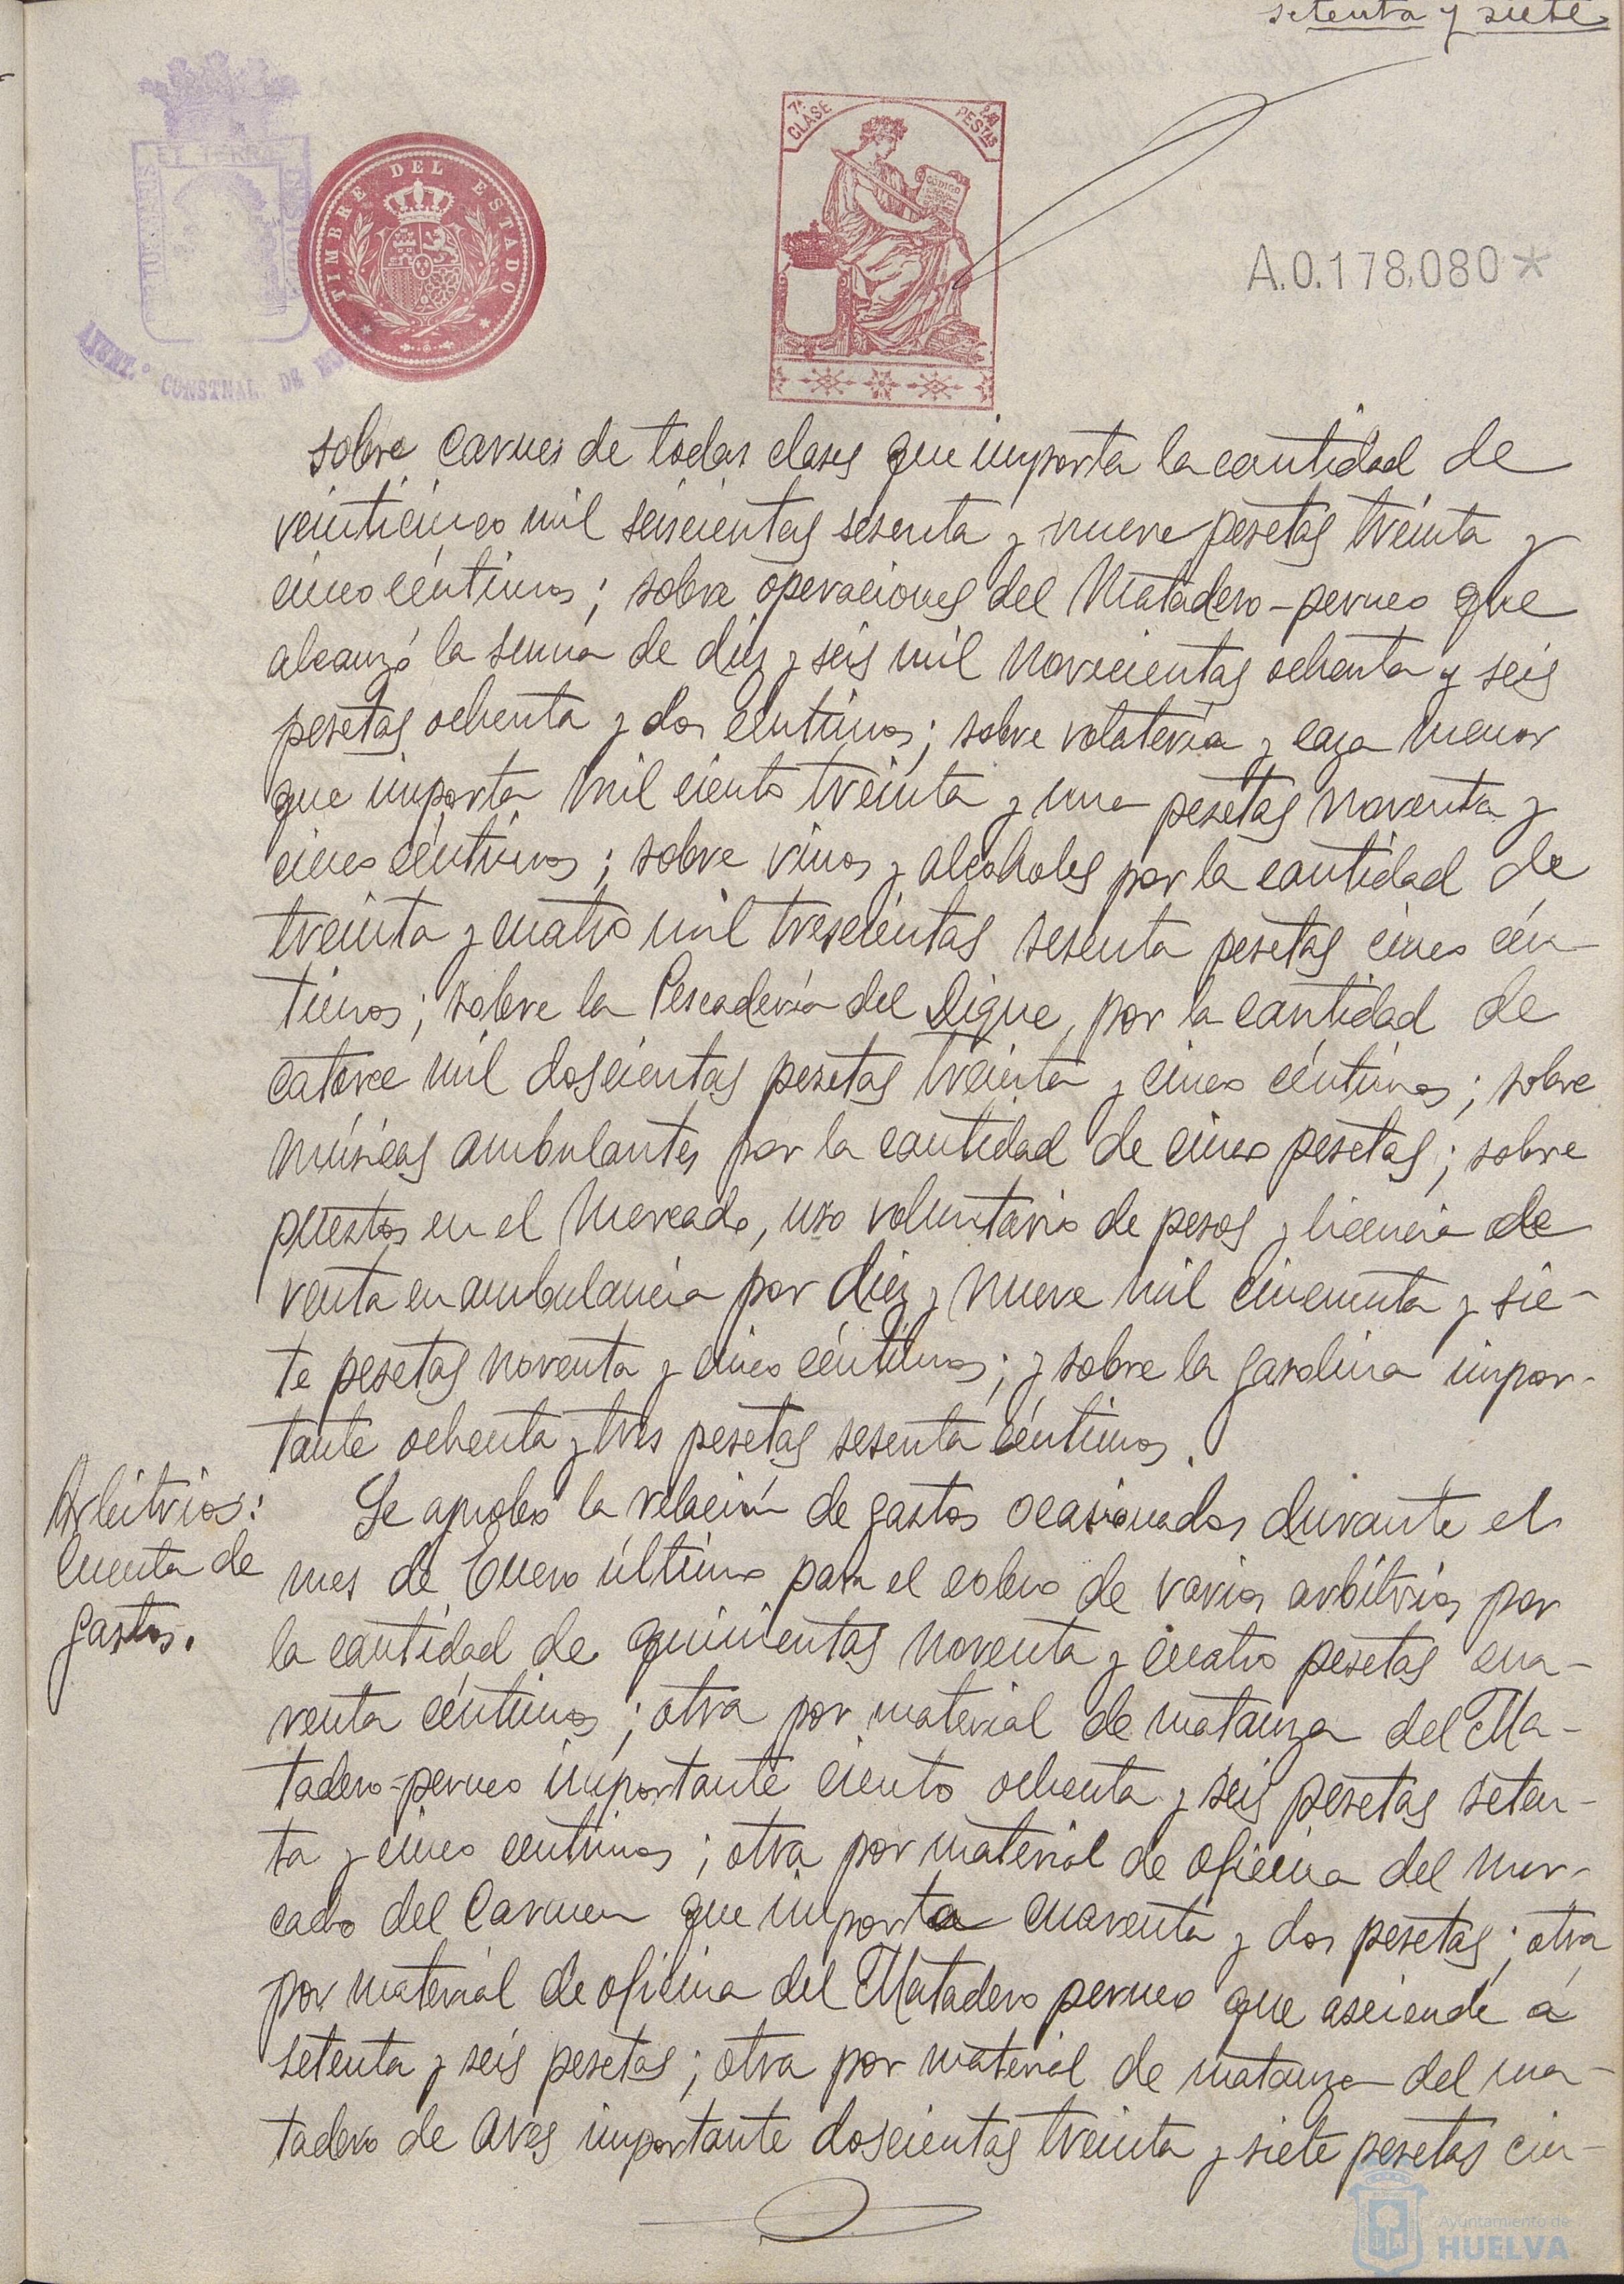 setenta y siete
7ª CLASE
PESETAS
CÓDIGO
TIMBRE DEL ESTADO
AYUNT.º CONSTNAL. DE
A.0.178,080*
sobre carnes de todas clases que importa la cantidad de
veinticinco mil seiscientas sesenta y nueve pesetas treinta y
cinco céntimos; sobre operaciones del Matadero-perneo que
alcanzó la suma de diez y seis mil novecientas ochenta y seis
pesetas ochenta y dos céntimos; sobre volatería y caza menor
que importa mil ciento treinta y una pesetas noventa y
cinco céntimos; sobre vinos y alcoholes por la cantidad de
treinta y cuatro mil trescientas sesenta pesetas cinco cén-
timos; sobre la Pescadería del Dique, por la cantidad de
catorce mil doscientas pesetas treinta y cinco céntimos; sobre
músicas ambulantes por la cantidad de cinco pesetas; sobre
puestos en el Mercado, uso voluntario de pesos y licencia de
venta en ambulancia por diez y nueve mil cincuenta y sie-
te pesetas noventa y cinco céntimos; y sobre la gasolina impor-
tante ochenta y tres pesetas sesenta céntimos.
Arbitrios:
Cuenta de
gastos.
Se aprobó la relación de gastos ocasionados durante el
mes de Enero último para el cobro de varios arbitrios por
la cantidad de quinientas noventa y cuatro pesetas cua-
renta céntimos; otra por material de matanza del Ma-
tadero-perneo importante ciento ochenta y seis pesetas seten-
ta y cinco centimos; otra por material de oficina del mer-
cado del Carmen que importa cuarenta y dos pesetas; otra
por material de oficina del Matadero perneo que asciende á
setenta y seis pesetas; otra por material de matanza del ma-
tadero de aves importante doscientas treinta y siete pesetas cin-
Ayuntamiento de
HUELVA